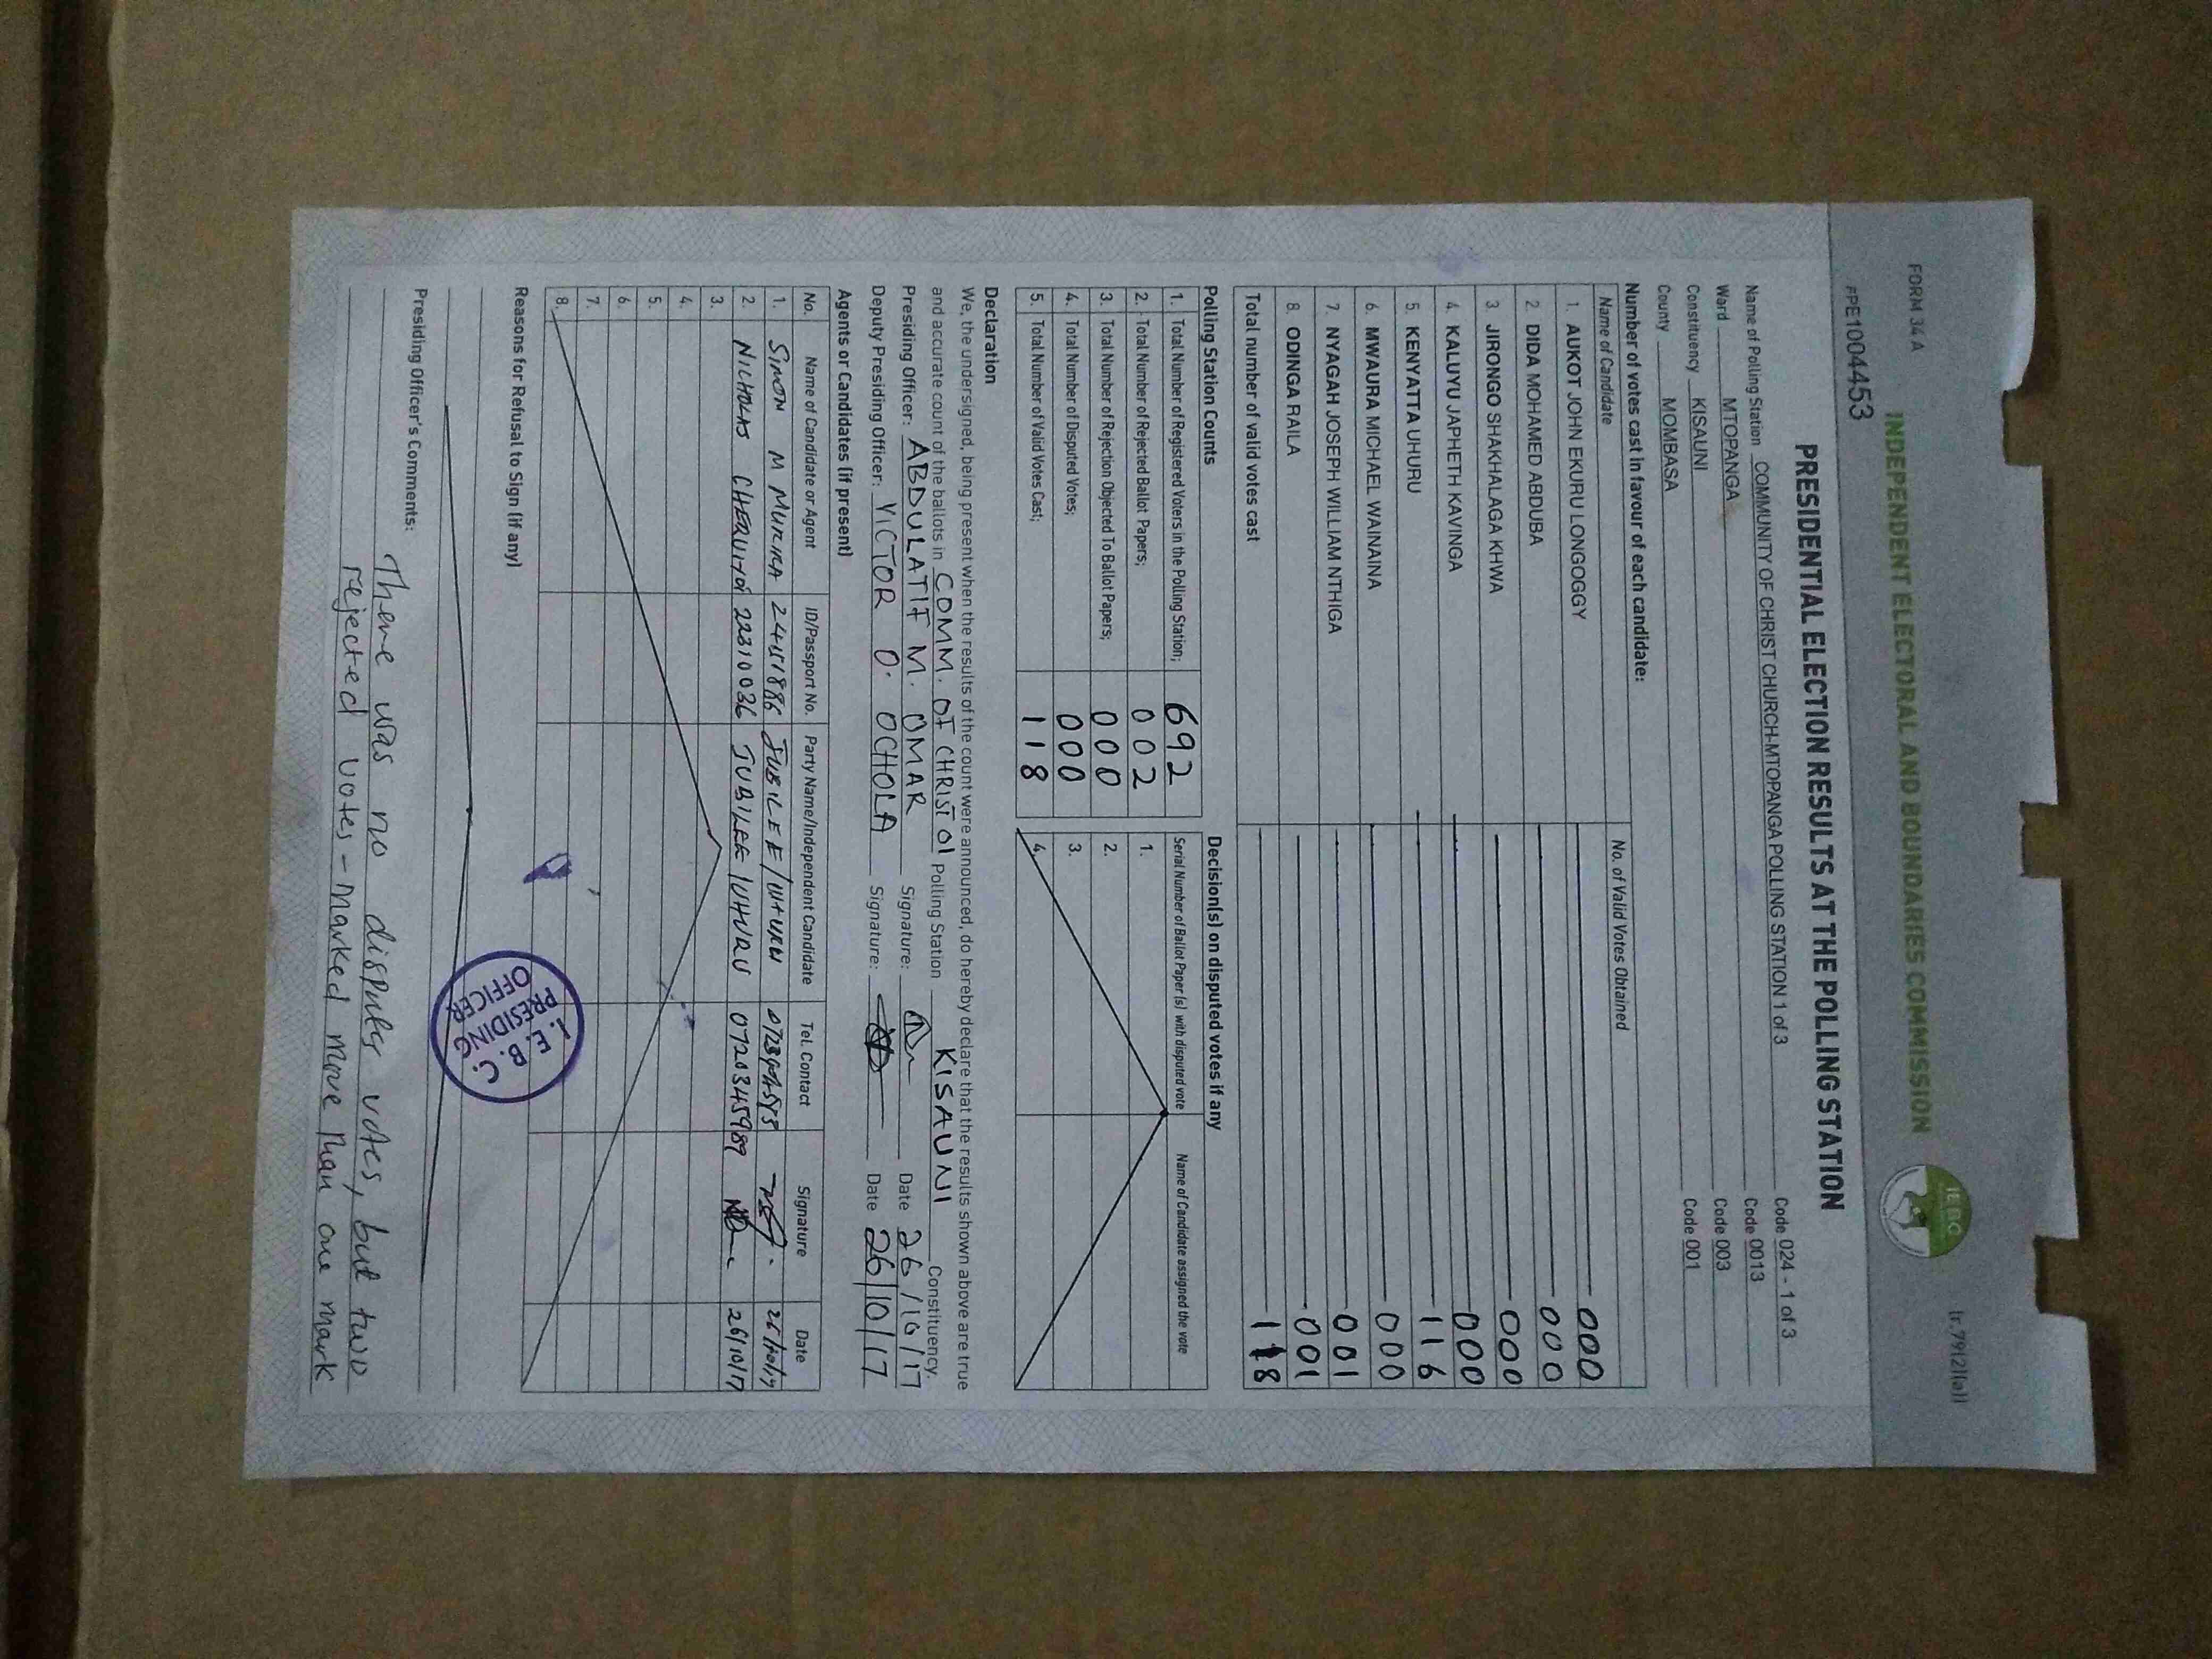 FORM 34A
Ir.79(2)(a))
INDEPENDENT ELECTORAL AND BOUNDARIES COMMISSION
IEBC
FPE1004453
PRESIDENTIAL ELECTION RESULTS AT THE POLLING STATION
Name of Polling Station COMMUNITY OF CHRIST CHURCH-MTOPANGA POLLING STATION 1 of 3 Code 024 - 1 of 3
Ward MTOPANGA Code 0013
Constituency KISAUNI Code 003
County MOMBASA Code 001
Number of votes cast in favour of each candidate:
Name of Candidate No. of Valid Votes Obtained
1. AUKOT JOHN EKURU LONGOGGY 000
2. DIDA MOHAMED ABDUBA 000
3. JIRONGO SHAKHALAGA KHWA 000
4. KALUYU JAPHETH KAVINGA 000
5. KENYATTA UHURU 116
6. MWAURA MICHAEL WAINAINA 000
7. NYAGAH JOSEPH WILLIAM NTHIGA 001
8. ODINGA RAILA 001
Total number of valid votes cast 118
Polling Station Counts
1. Total Number of Registered Voters in the Polling Station; 692
2. Total Number of Rejected Ballot Papers; 002
3. Total Number of Rejection Objected To Ballot Papers; 000
4. Total Number of Disputed Votes; 000
5. Total Number of Valid Votes Cast; 118
Decision(s) on disputed votes if any
Serial Number of Ballot Paper (s) with disputed vote Name of Candidate assigned the vote
1.
2.
3.
4.
Declaration
We, the undersigned, being present when the results of the count were announced, do hereby declare that the results shown above are true
and accurate count of the ballots in COMM. OF CHRIST 01 Polling Station KISAUNI Constituency.
Presiding Officer: ABDULATIF M. OMAR Signature: Date 26/10/17
Deputy Presiding Officer: VICTOR O. OCHOLA Signature: Date 26/10/17
Agents or Candidates (if present)
No. Name of Candidate or Agent ID/Passport No. Party Name/Independent Candidate Tel. Contact Signature Date
1. SIMON M JUBILEE/UHURU 26/10/17
2. NICHOLAS 22310036 JUBILEE/UHURU 0720345989 26/10/17
3.
4.
5.
6.
7.
8.
Reasons for Refusal to Sign (if any)
I.E.B.C.
PRESIDING
OFFICER
Presiding Officer's Comments:
There was no disputes votes, but two
rejected votes - marked more than one mark